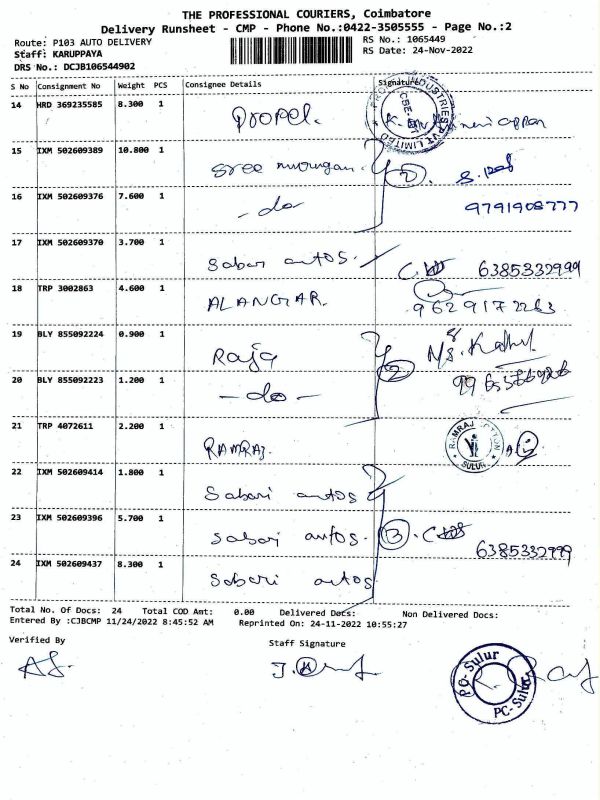 THE PROFESSIONAL COURIERS, Coimbatore
Delivery Runsheet - CMP - Phone No.:0422-3505555 - Page No.:2
Route: P103 AUTO DELIVERY RS No.: 1065449
Staff: KARUPPAYA RS Date: 24-Nov-2022
DRS No.: DCJB106544902
S No Consignment No Weight PCS Consignee Details Signature
14 HRD 369235585 8.300 1 Propel.
15 IXM 502609389 10.800 1 Sree murugan. 2
16 IXM 502609376 7.600 1 - do 9791908777
17 IXM 502609370 3.700 1 Sabari autos. 6385332999
18 TRP 3002863 4.600 1 ALANGAR. 9629172263
19 BLY 855092224 0.900 1 Raja 2
20 BLY 855092223 1.200 1 - do -
21 TRP 4072611 2.200 1 RAMRAJ. RAMRAJ COTTON SULUR
22 IXM 502609414 1.800 1 Sabari autos
23 IXM 502609396 5.700 1 Sabari autos. 3 6385332999
24 IXM 502609437 8.300 1 Sabari autos
Total No. Of Docs: 24 Total COD Amt: 0.00 Delivered Docs: Non Delivered Docs:
Entered By :CJBCMP 11/24/2022 8:45:52 AM Reprinted On: 24-11-2022 10:55:27
Verified By Staff Signature
PC-Sulur
PC-Sulur